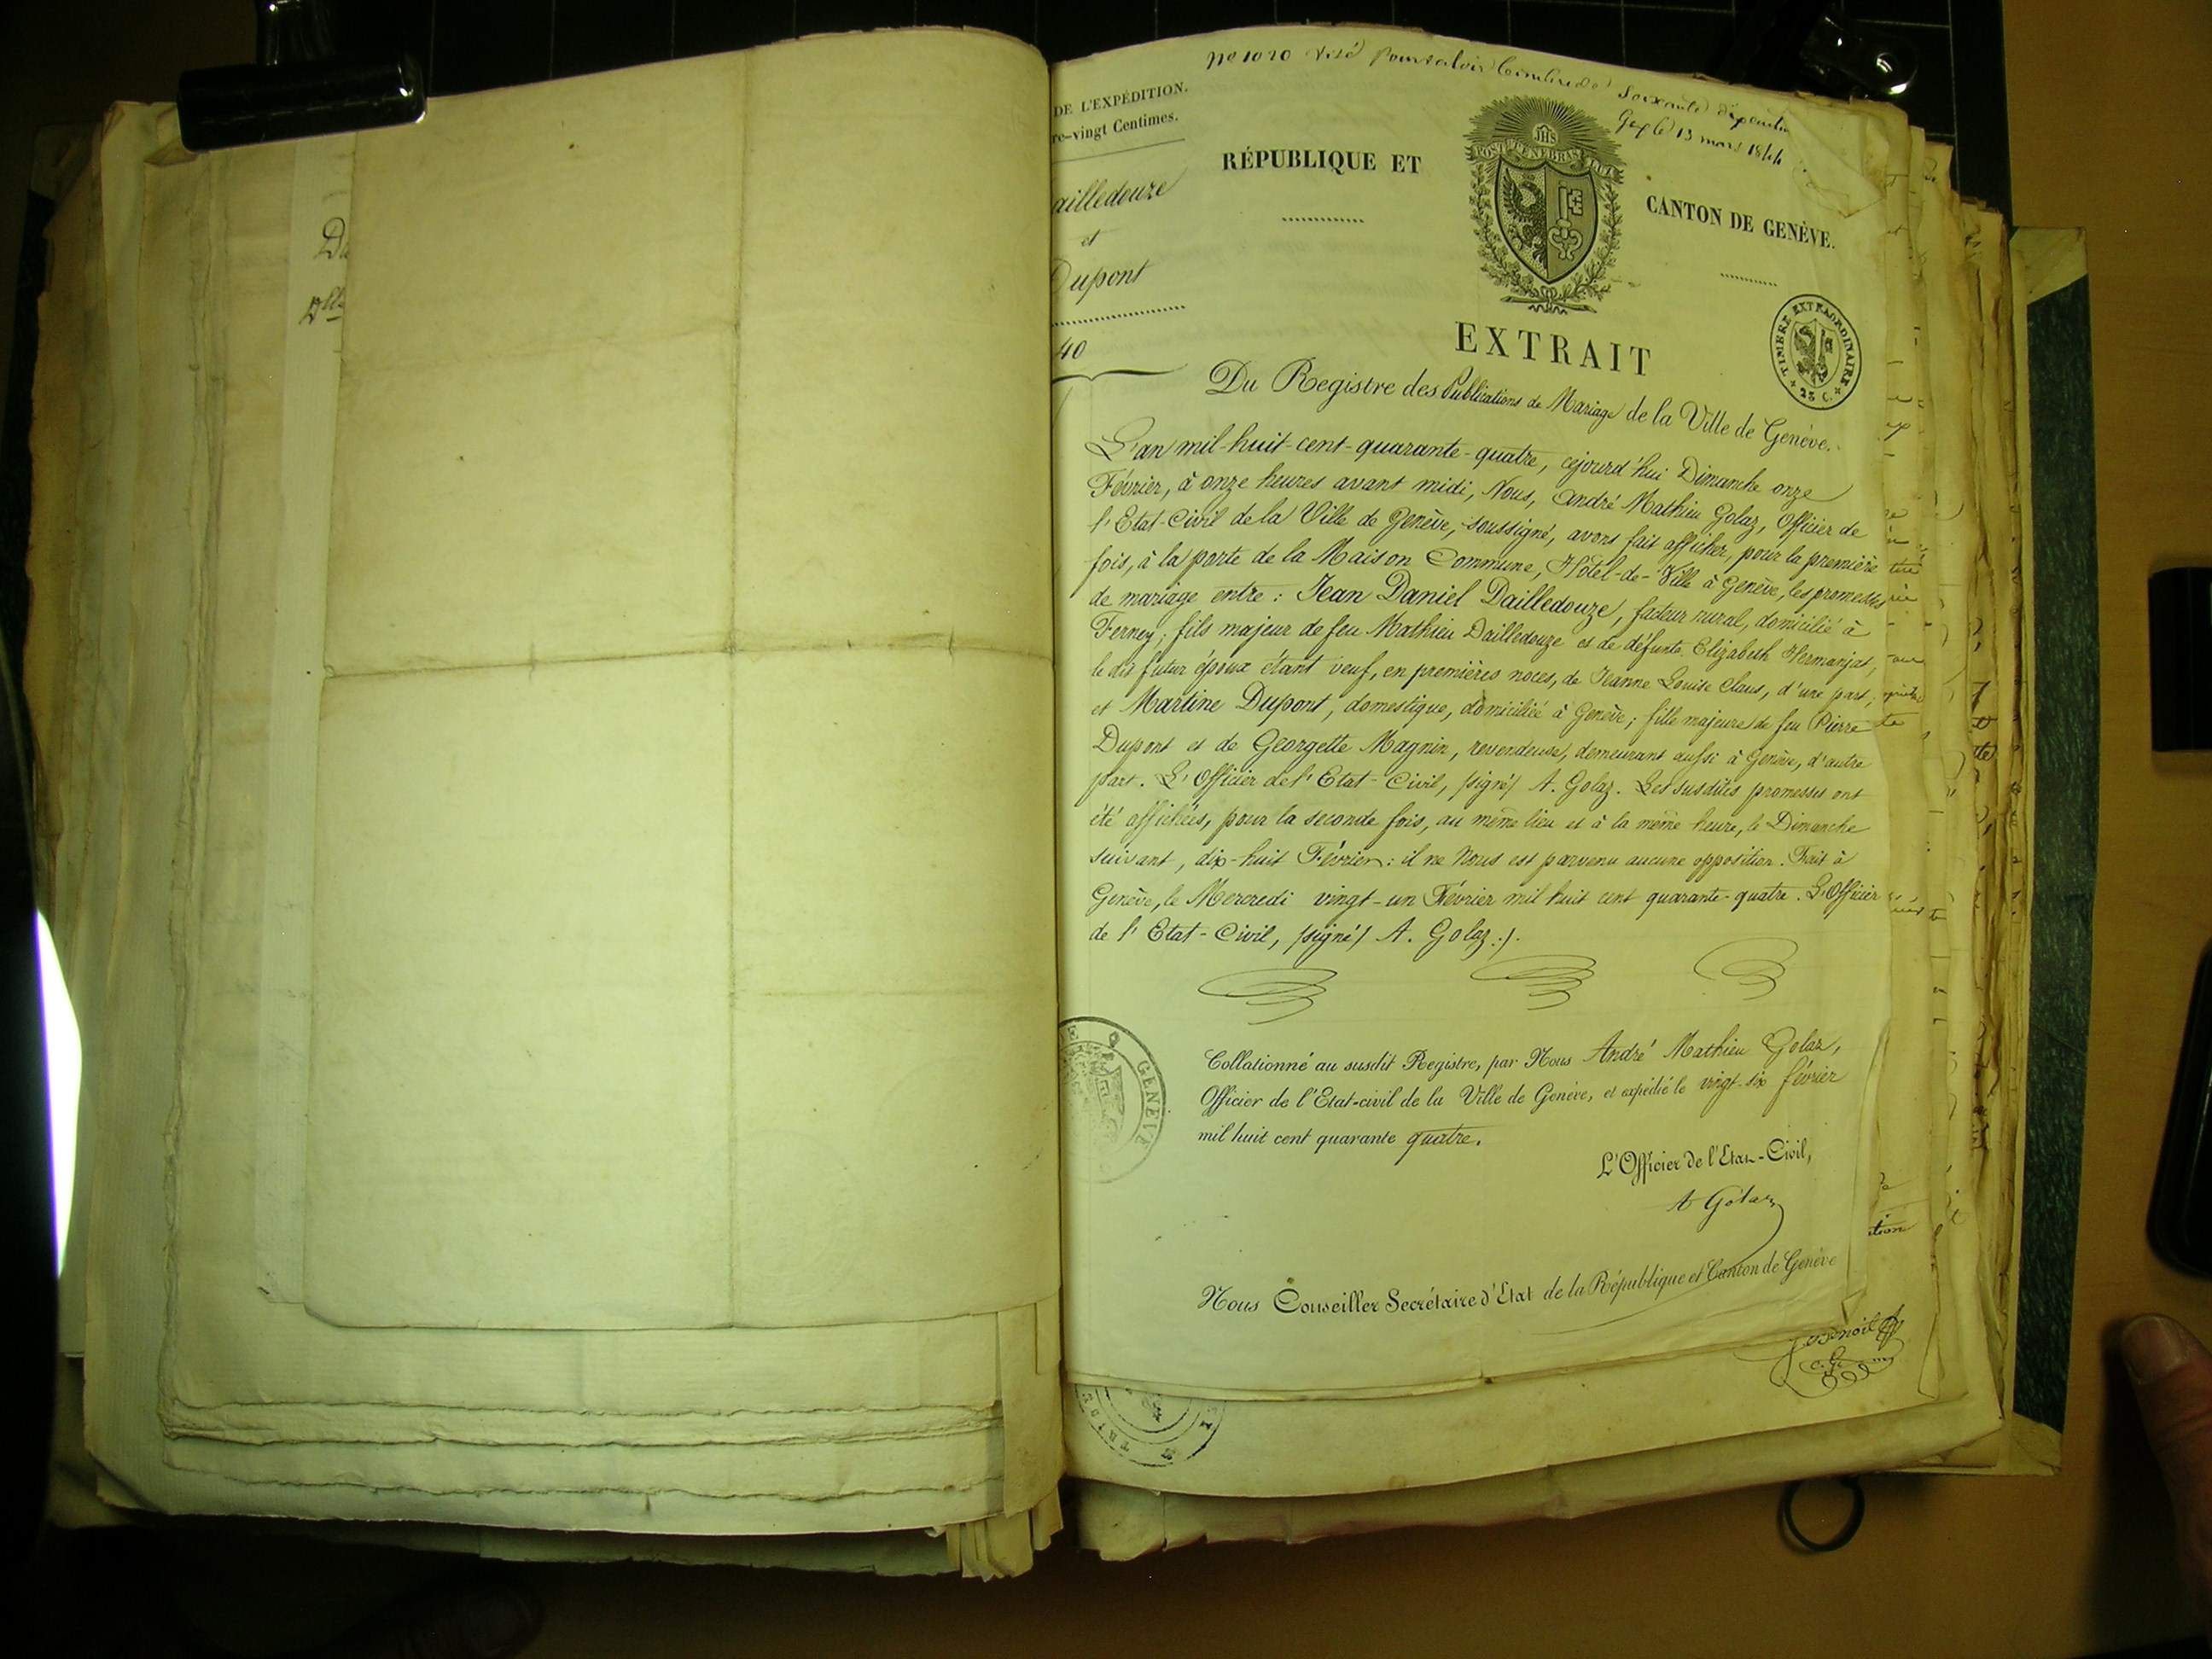 Du
Dlle
DE L'EXPÉDITION.
re-vingt Centimes.
ailledouze
et
Dupont
40
No 1020 visé pour valoir timbre de soixante dix centimes
Gex le 13 mars 1844
RÉPUBLIQUE ET
JHS
POST TENEBRAS LUX
CANTON DE GENÈVE.
TIMBRE EXTRAORDINAIRE
25 C.
EXTRAIT
Du Registre des Publications de Mariage de la Ville de Genève.
L'an mil-huit-cent-quarante-quatre, cejourd'hui Dimanche onze
Février, à onze heures avant midi, Nous, André Mathieu Golaz, Officier de
l'Etat-Civil de la Ville de Genève, soussigné, avons fait afficher, pour la première
fois, à la porte de la Maison Commune, Hôtel-de-Ville à Genève, les promesses
de mariage entre : Jean Daniel Dailledouze, facteur rural, domicilié à
Ferney; fils majeur de feu Mathieu Dailledouze et de défunte Elizabeth Hermanjat,
le dit futur époux étant veuf, en premières noces, de Jeanne Louise Claus, d'une part;
et Martine Dupont, domestique, domiciliée à Genève; fille majeure de feu Pierre
Dupont et de Georgette Magnin, revendeuse, demeurant aussi à Genève, d'autre
part. L'Officier de l'Etat-Civil, /signé/ A. Golaz. Les susdites promesses ont
été affichées, pour la seconde fois, au même lieu et à la même heure, le Dimanche
suivant, dix-huit Février: il ne Nous est parvenu aucune opposition. Fait à
Genève, le Mercredi vingt-un Février mil huit cent quarante-quatre. L'Officier
de l'Etat-Civil, /signé/ A. Golaz./.
GENÈVE
Collationné au susdit Registre, par Nous André Mathieu Golaz,
Officier de l'Etat-civil de la Ville de Genève, et expédié le vingt-six février
mil huit cent quarante quatre.
L'Officier de l'Etat-Civil,
A Golaz
Nous Conseiller Secrétaire d'Etat de la République et Canton de Genève